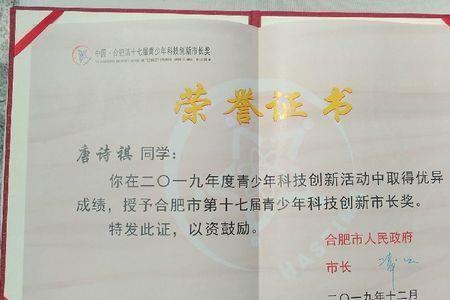 中国·合肥第十七届青少年科技创新市长奖
荣誉证书
唐诗祺 同学：
你在二〇一九年度青少年科技创新活动中取得优异
成绩，授予合肥市第十七届青少年科技创新市长奖。
特发此证，以资鼓励。
合肥市人民政府
市长
二〇一九年十二月